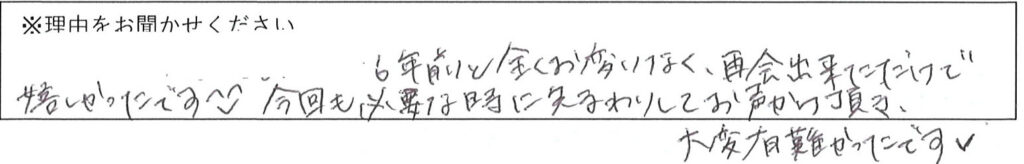 ※理由をお聞かせください
6年前と全くお変りなく、再会出来ただけで
嬉しかったです^^ 今回も必要な時に先まわりしてお声かけ頂き、
大変有難かったです✓